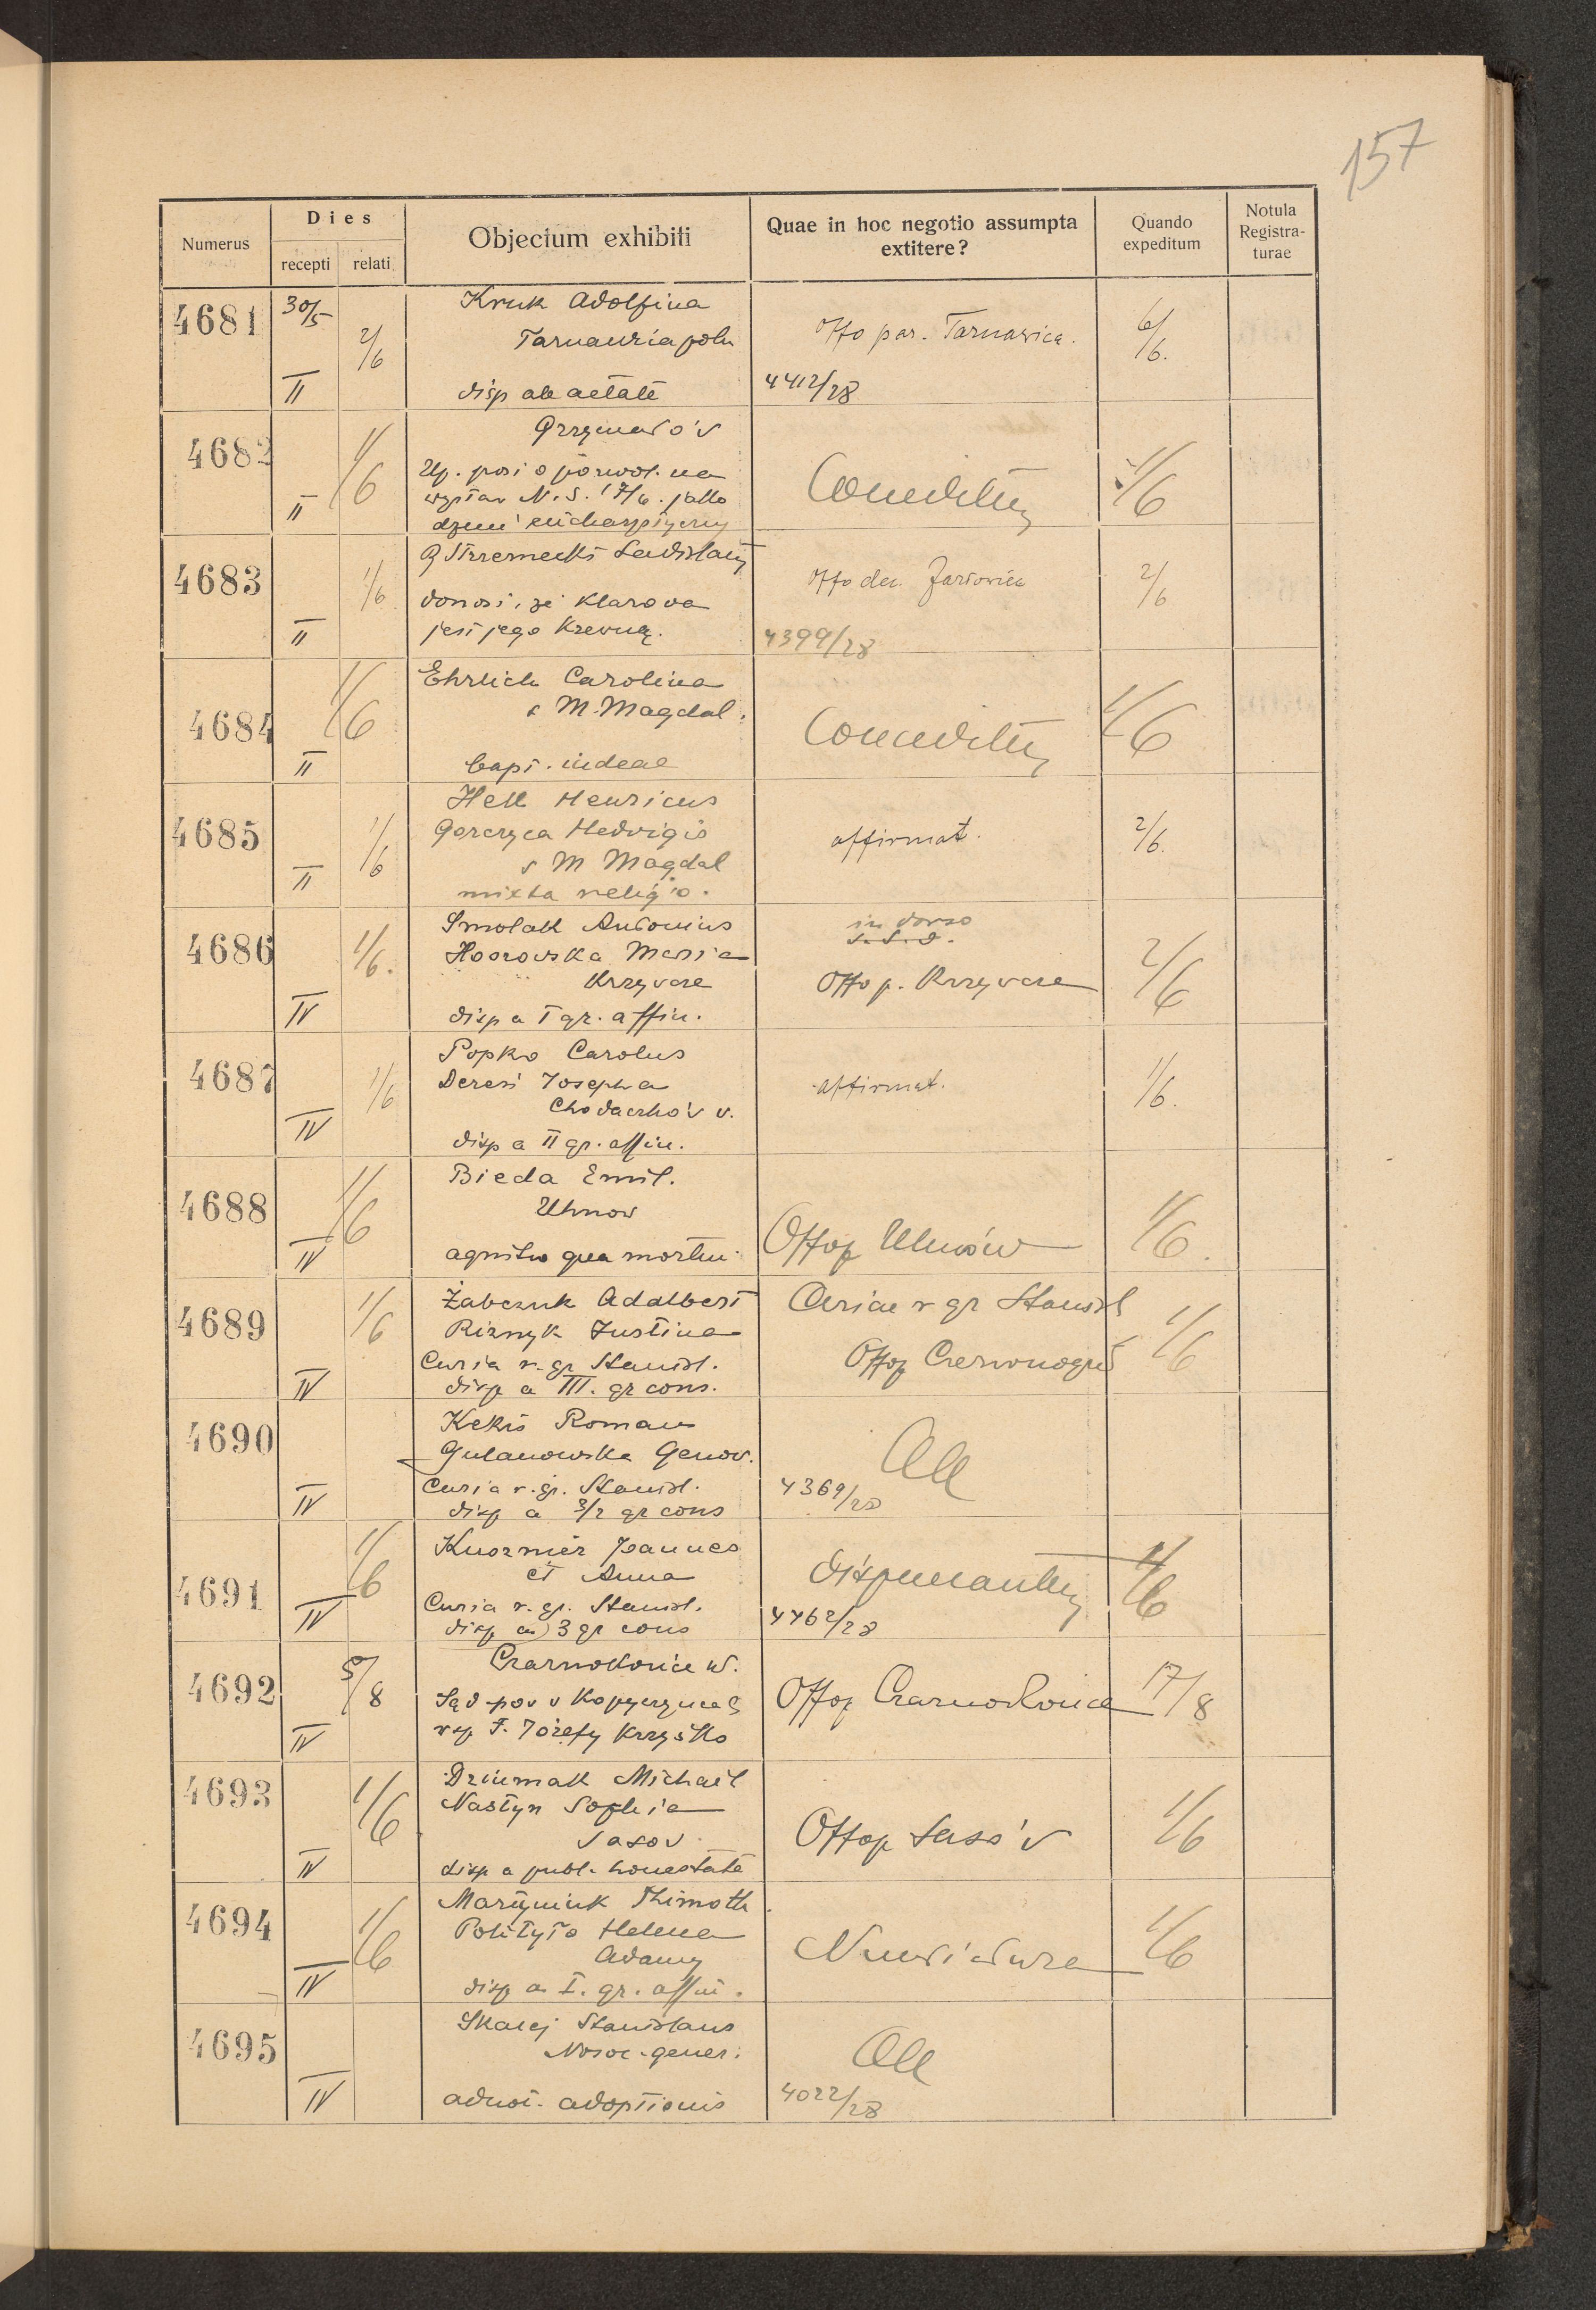 157
Numerus
Dies
recepti
relati
Objectum exhibiti
Quae in hoc negotio assumpta
extitere?
Quando
expeditum
Notula
Registra-
turae
4681
30/5
II
2/6
Kruk Adolfina
disp ab aetate
Offo par. Tarnawica.
4412/28
6/6.
4682
II
1/6
Grzymałów
Up. posi o pozwol. na
wystaw N. S. 17/6. jako
Conceditur
1/6
4683
II
1/6
donosi, że Klarowa
jest jego Krewną.
Offo dec.
4399/28
2/6
4684
II
1/6
Ehrlich Carolina
s M. Magdal.
bapt. iudeae
Conceditur
1/6
4685
II
1/6
Hell Henricus
Gorczyca Hedvigis
s M Magdal
mixta religio.
affirmat.
2/6.
4686
IV
1/6.
Smolak Antonius
Maria
Krzywcze
disp a I gr. affin.
in dorso
Offo p. Krzywcze
2/6
4687
IV
1/6
Popko Carolus
Deren Josepha
Chodaczków w.
disp a II gr. affin.
affirmat.
1/6.
4688
IV
1/6
Bieda Emil.
Uhnow
agnitio qua mortui
Offop Uhnów
1/6.
4689
IV
1/6
Żabczuk Adalbert
Riznyk Justina
Curia r. gr Stanisl.
disp a III. gr cons.
Curiae r gr Stanisl
Offop Czerwonogród
1/6
4690
IV
Kekis Roman
Gulanowska Genow.
Curia r. gr. Stanisl.
disp a 3/2 gr cons
All
4369/28
4691
IV
1/6
Kuszmier Joannes
et Anna
Curia r. gr. Stanisl.
disp a 3 gr cons
dispensantur
4462/28
1/6
4692
IV
5/8
Czarnokońce w.
Sąd pow w Kopyczyńcach
Józefy Krzyśko
Offop Czarnokońce
17/8
4693
IV
1/6
Dziumak Michael
Nastyn Sophia
Sasow
disp a publ. honestate
Offop Sasów
1/6
4694
IV
1/6
Martyniuk Thimoth.
Politylo Helena
Adamy
disp a I. gr. affin.
Nunciatura
1/6
4695
IV
Skalej Stanislaus
Nosoc. gener.
adnot. adoptionis
All
4022/28